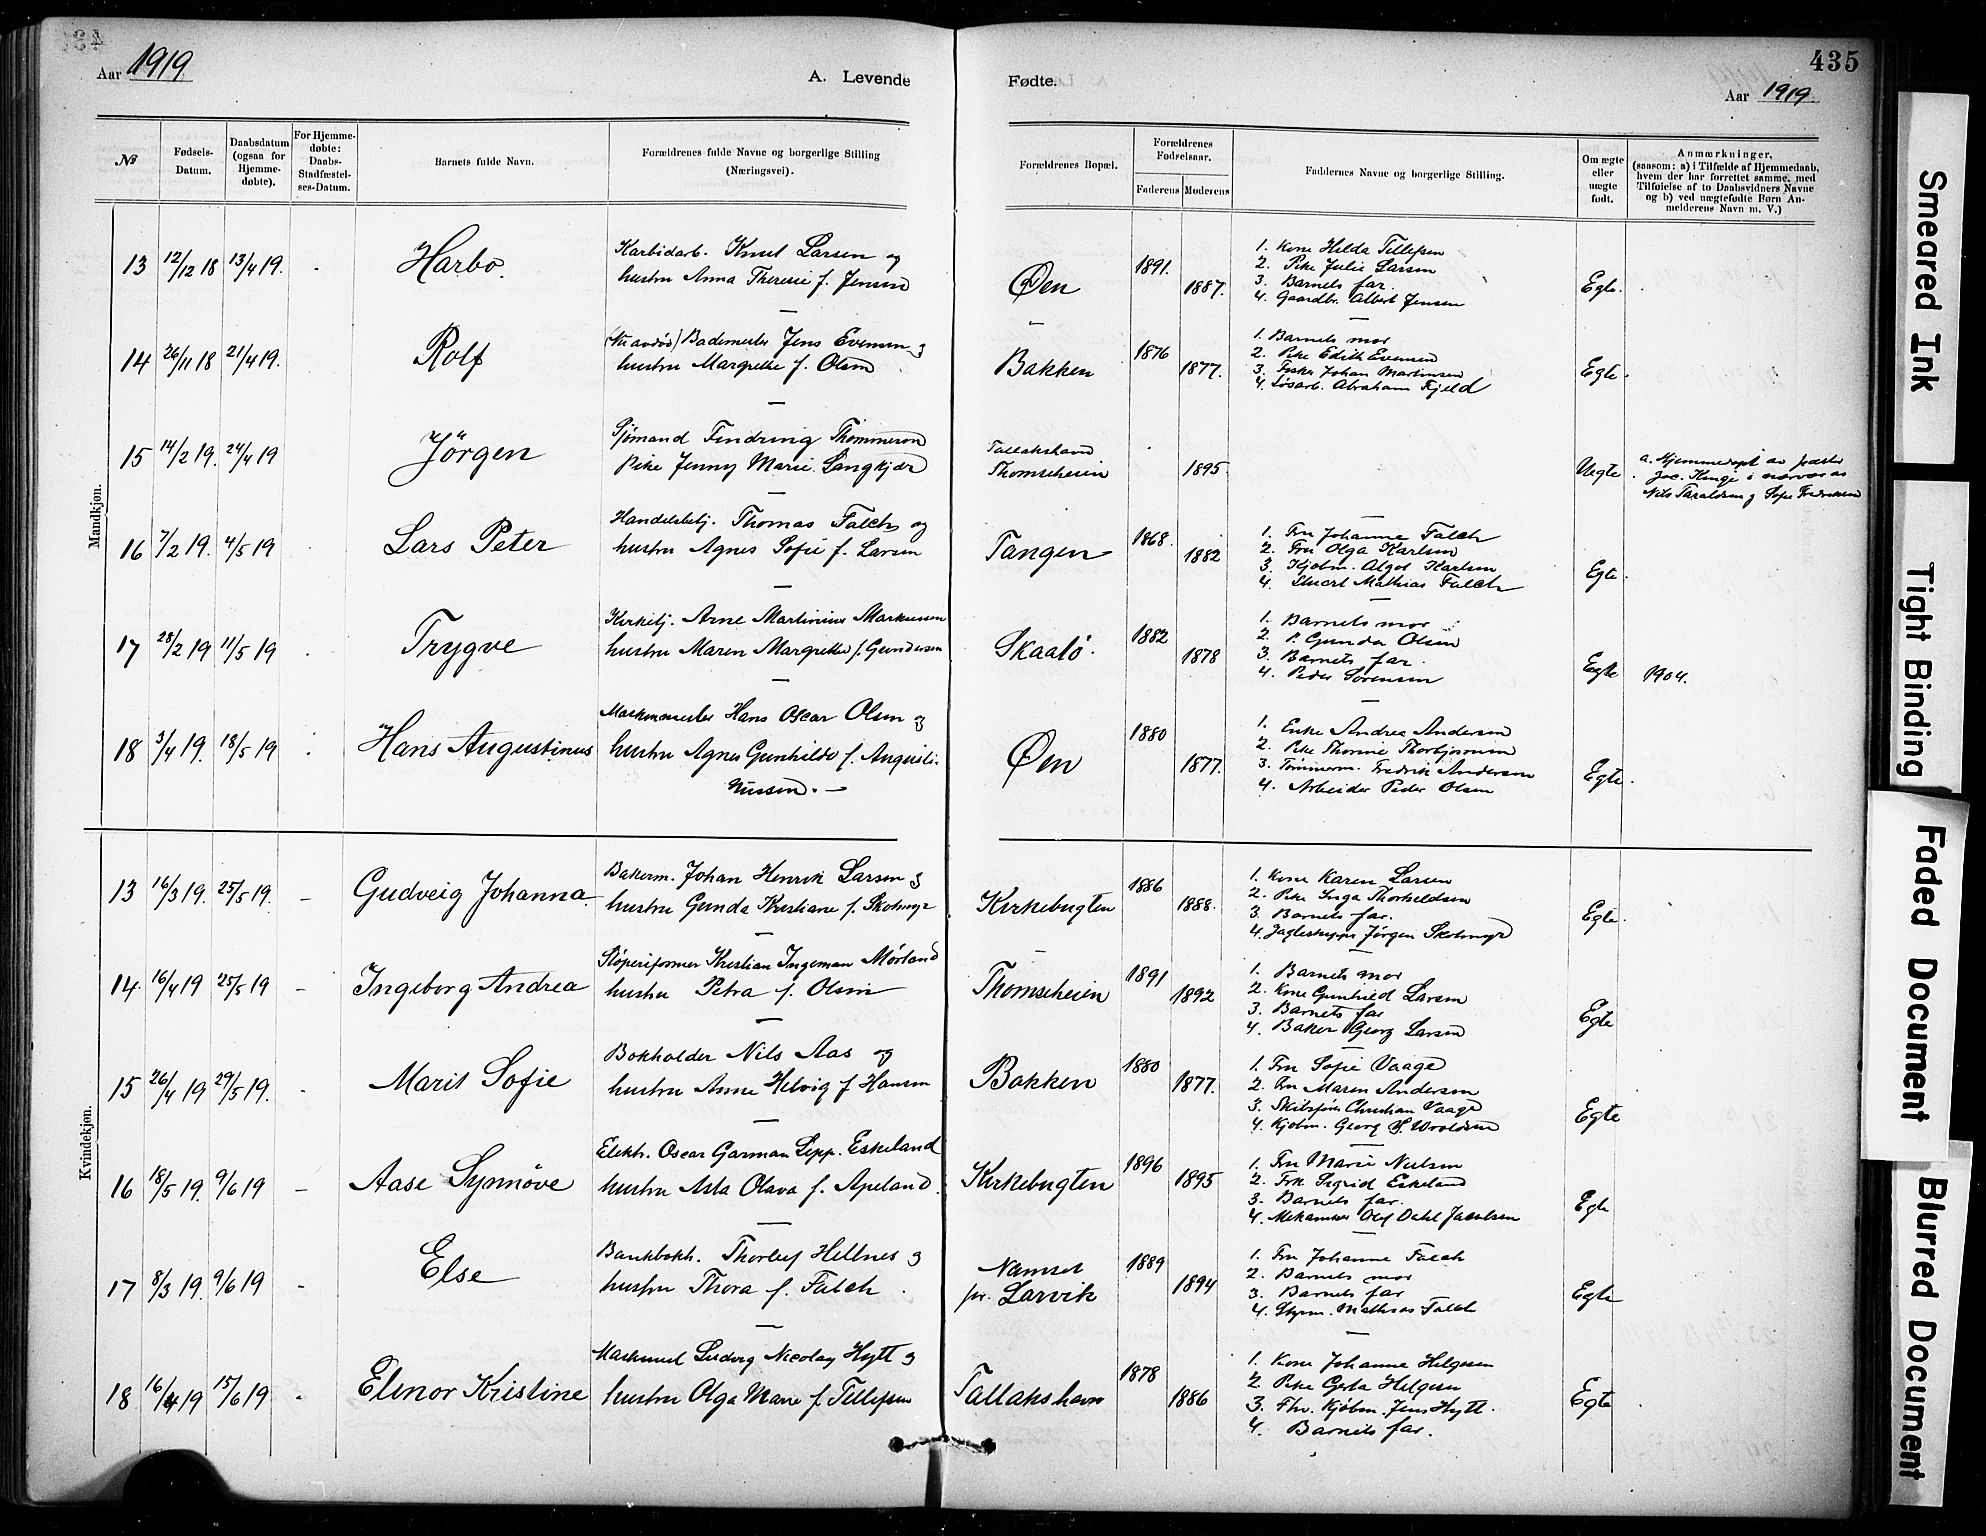 435
Aar 1919
A. Levende Fødte.
Aar 1919
№
Fødsels-Datum.
Daabsdatum (ogsaa for Hjemmedøbte).
For Hjemmedøbte: Daabs-Stadfæstelses-Datum.
Barnets fulde Navn.
Forældrenes fulde Navne og borgerlige Stilling (Næringsvei).
Forældrenes Bopæl.
Forældrenes Fødselsaar.
Faderens
Moderens
Faddernes Navne og borgerlige Stilling.
Om ægte eller uægte født.
Anmærkninger,
(saasom: a) i Tilfælde af Hjemmedaab,
hvem der har forrettet samme, med
Tilføielse af to Daabsvidners Navne
og b) ved uægtefødte Børn Anmelderens Navn m. V.)
Mandkjøn.
13 12/12 18 13/4 19. Harbo. Karbidarb. Knut Larsen og
hustru Anna Theresie f. Jensen
Øen 1891. 1887.
1. Kone Hilda Tellefsen
2. Pike Julie Larsen
3. Barnets far.
4. Gaardbr. Albert Jensen
Egte.
14 26/11 18 21/4 19. Rolf (Nu avdød) Bademester Jens Evensen og
hustru Margrethe f. Olsen
Bakken 1876 1877.
1. Barnets mor
2. Pike Edith Evensen
3. Fisker Johan Martinsen
4. Løsarb. Abraham Fjeld
Egte.
15 14/2 19. 24/4 19 Jörgen Sjømand Findring Thommesen
Pike Jenny Marie Langkjær
Tallakshavn
Thomseheien 1895.
Uegte
a. Hjemmedøpt av præsten
Jac. Kinge i nærvær av
Nils Taraldsen og Sofie Fredriksen
16 7/2 19. 4/5 19 Lars Peter Handelsbetj. Thomas Falch og
hustru Agnes Sofie f. Larsen
Tangen 1868. 1882
1. Fru Johanne Falch
2. Fru Olga Karlsen
3. Kjøbm. Algot Karlsen
4. Stuert Mathias Falch
Egte.
17 28/2 19 11/5 19 Trygve Kirketj. Arne Martinius Markussen
hustru Maren Margrethe f. Gundersen
Skaalö. 1882 1878
1. Barnets mor
2. P. Gunda Olsen
3. Barnets far.
4. Peder Sørensen
Egte 1904.
18 3/4 19. 18/5 19 Hans Augustinus Maskinmester Hans Oscar Olsen og
hustru Agnes Gunhilde f. Augusti-
nussen.
Øen 1880 1877.
1. Enke Andrea Andersen
2. Pike Thomine Thorbjørnsen
3. Tømmerm. Fredrik Andersen
4. Arbeider Peder Olsen
Egte.
Kvindekjøn.
13 16/3 19. 25/5 19. Gudveig Johanna. Bakerm. Johan Henrik Larsen og
hustru Gunda Kristiane f. Skotmyr
Kirkebugten 1886 1888.
1. Kone Karen Larsen
2. Pike Inga Thorkeldsen
3. Barnets far.
4. Jørgen Skotmyr
Egte.
14. 16/4 19 25/5 19 Ingeborg Andrea Støperiformer Kristian Ingeman Mørland
hustru Petra f. Olsen
Thomseheien 1891 1892
1. Barnets mor
2. Kone Gunhild Larsen
3. Barnets far
4. Baker Georg Larsen
Egte
15 26/4 19 29/5 19. Marit Sofie Bokholder Nils Aas og
hustru Anne Helvig f Hansen
Bakken 1880 1877.
1. Fru Sofie Vaage
2. Fru Maren Andersen
3. Skibsfører Christian Vaage
4. Kjøbm. Georg S. Wroldsen
Egte
16 18/5 19. 9/6 19 Aase Synnöve Elektr. Oscar Garman Sepp. Eskeland
hustru Asta Olava f. Apeland.
Kirkebugten 1896 1895
1. Fru Marie Nielsen
2. Frk Sigrid Eskeland
3. Barnets far.
4. Mekaniker Olaf Dahl Jacobsen
Egte
17 8/3 19. 9/6 19 Else Bankbokh. Thorleif Hellnes og
hustru Thora f. Falch.
Namset
pr. Larvik 1889 1894
1. Fru Johanne Falch
2. Barnets mor
3. Barnets far
4. Styrm. Mathias Falch
Egte
18 16/4 19 15/6 19 Elinor Kristine Maskinist Ludvig Nicolay Hytt og
hustru Olga Marie f. Tellefsen
Tallakshavn 1878 1886
1. Kone Johanne Helgesen
2. Pike Gerda Helgesen
3. Fhv. Kjøbm. Jens Hytt.
4. Barnets far.
Egte
Smeared Ink
Tight Binding
Faded Document
Blurred Document